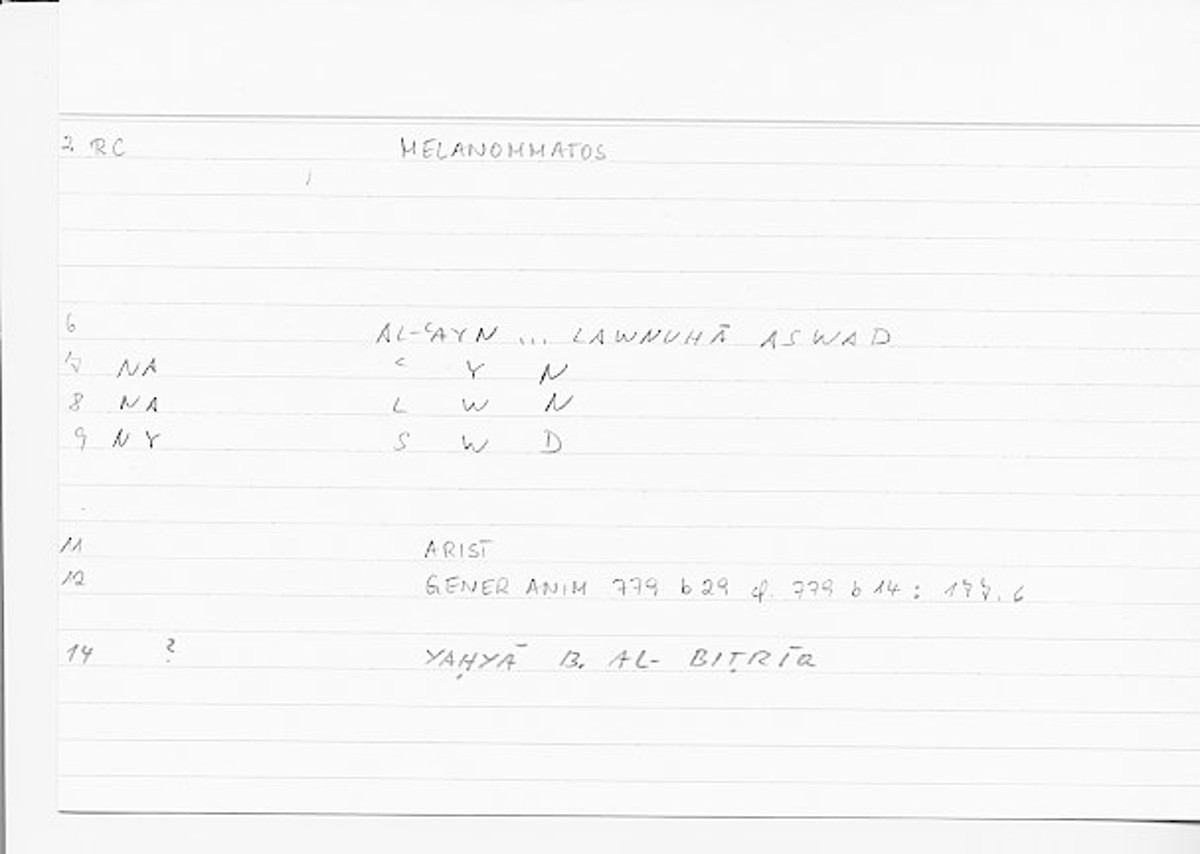 2 RC MELANOMMATOS
6 AL-ʿAYN ... LAWNUHĀ ASWAD
7 NA ʿ Y N
8 NA L W N
9 NY S W D
11 ARIST
12 GENER ANIM 779 b 29 cf. 779 b 14 : 177. 6
14 ? YAḤYĀ B. AL- BIṬRĪQ